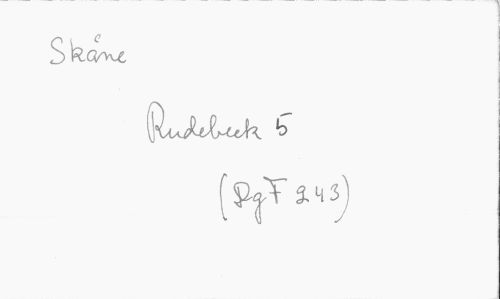 Skåne
Rudebeck 5
(DgF 243)